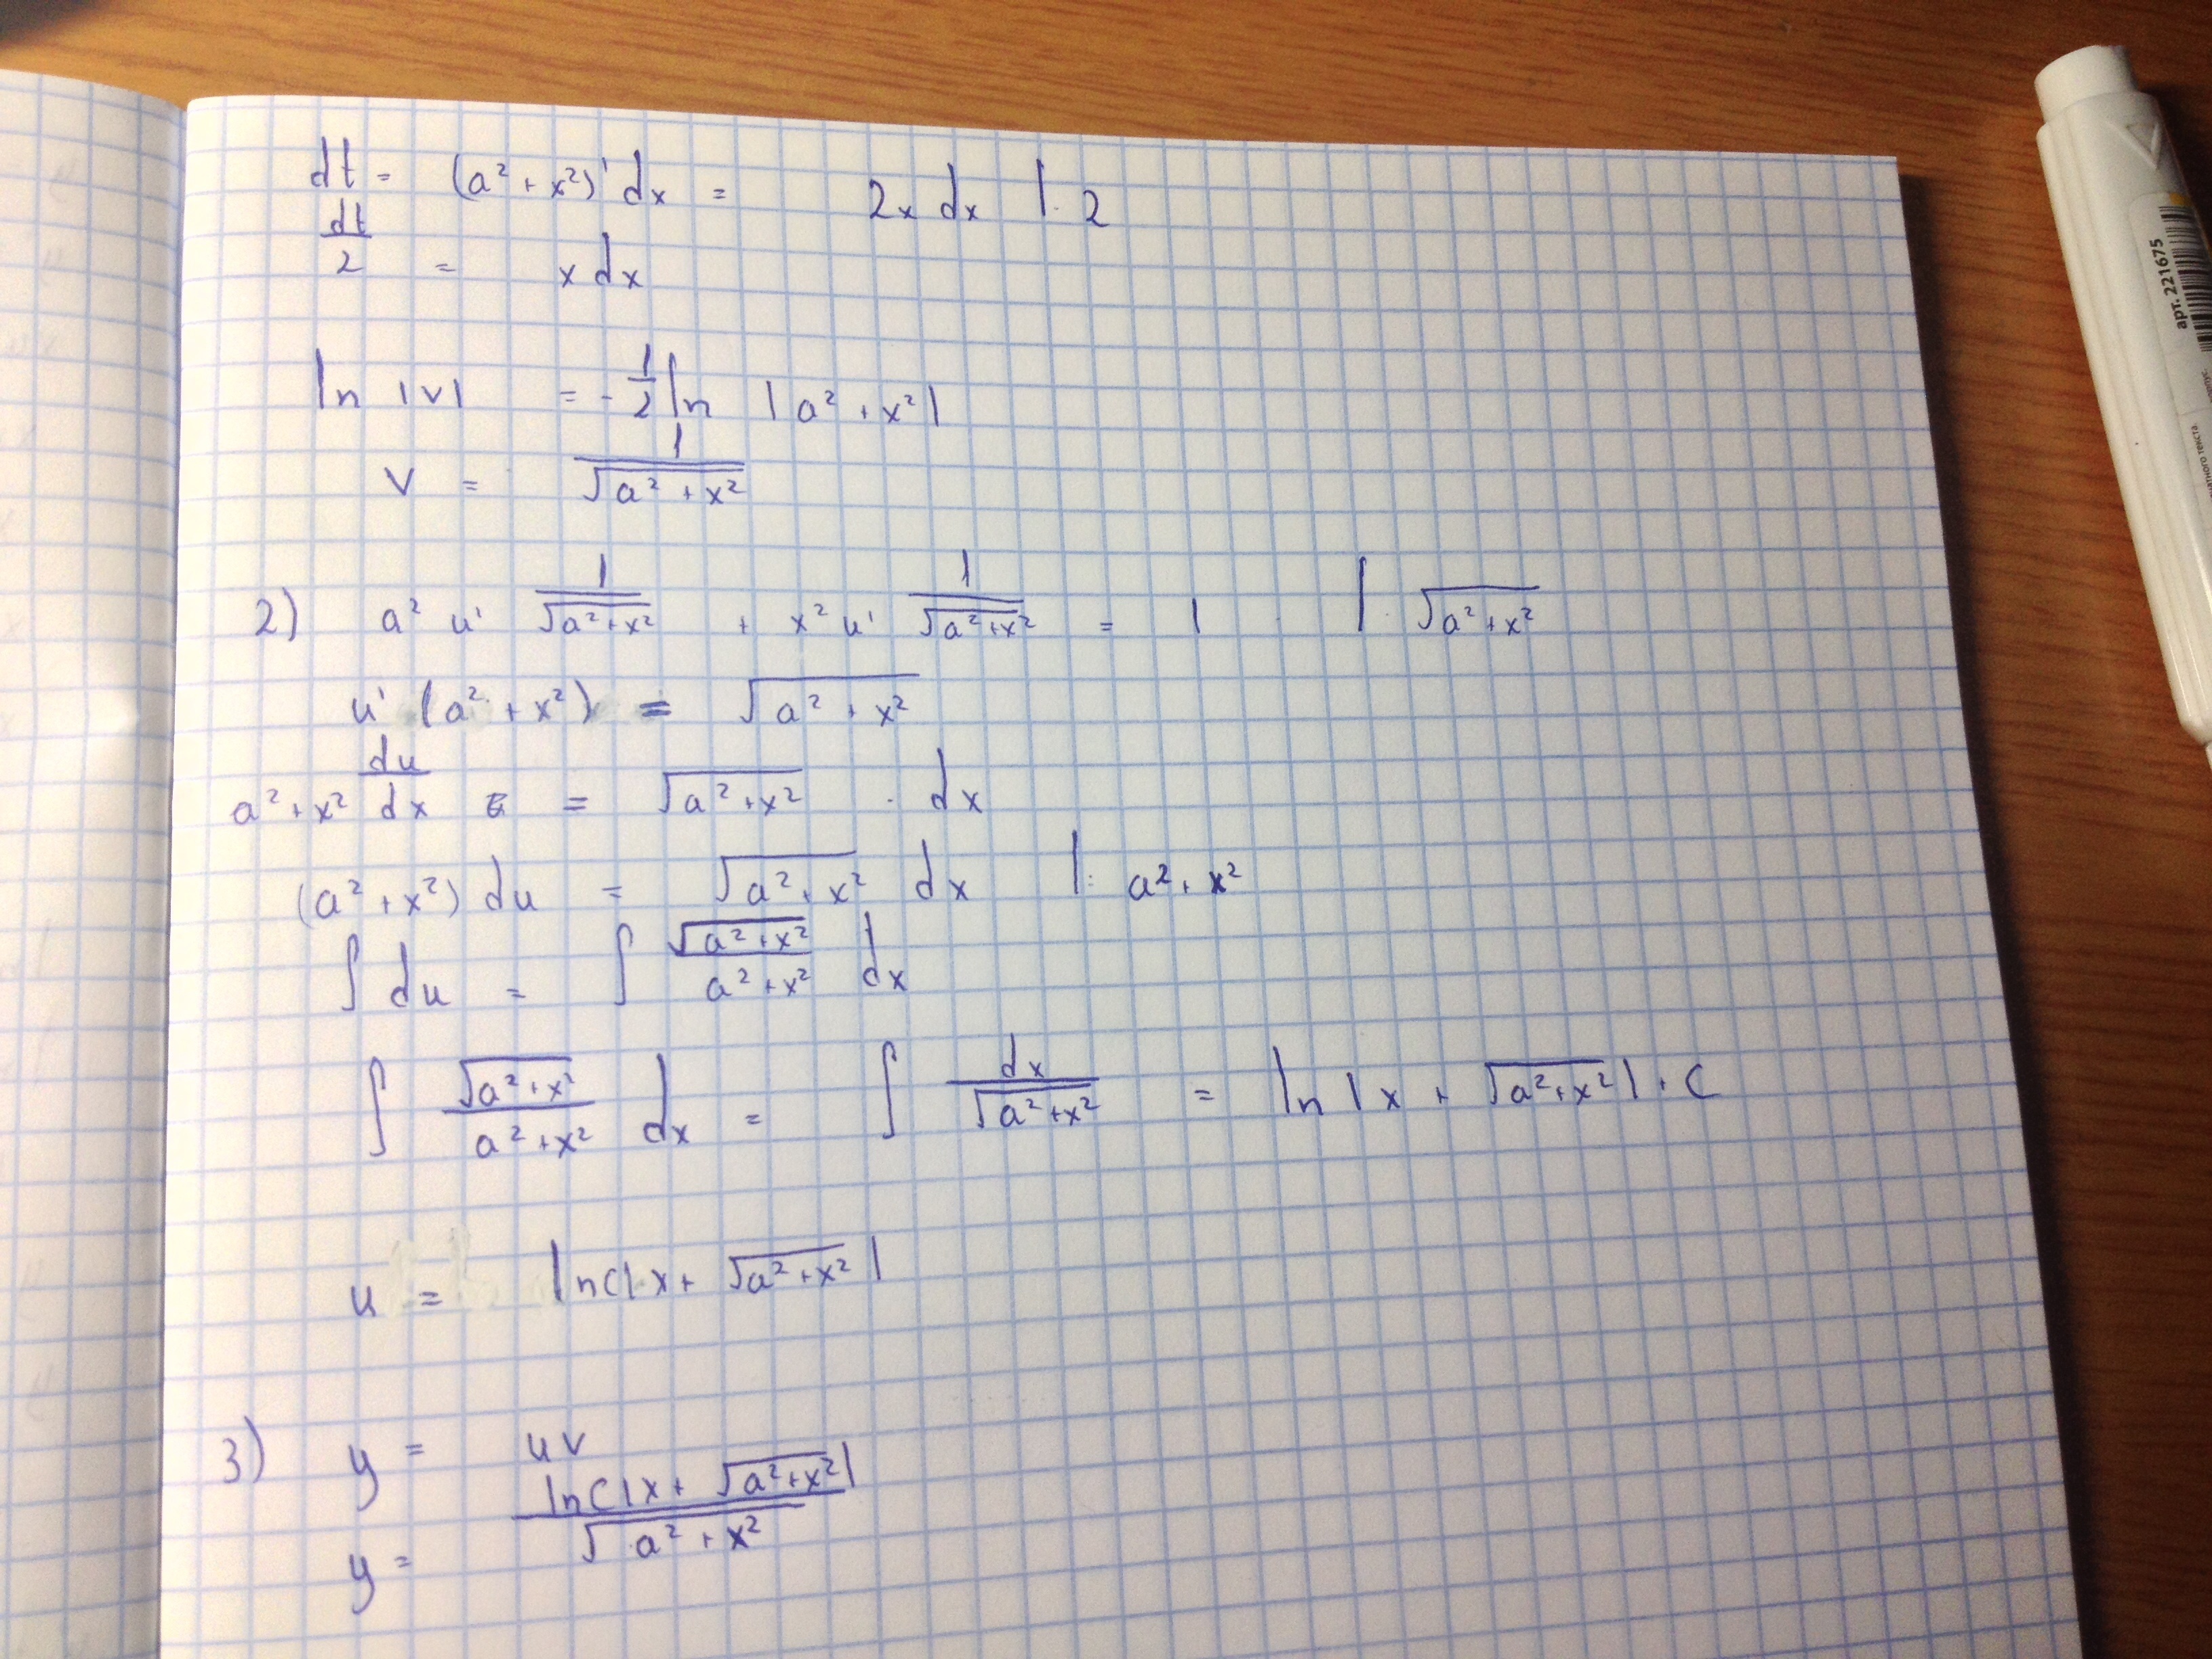 dt = (a² + x²)' dx = 2x dx |: 2
dt/2 = x dx
ln |v| = - 1/2 ln |a² + x²|
v = 1/√(a² + x²)
2) a² u' 1/√(a²+x²) + x² u' 1/√(a²+x²) = 1 |· √(a²+x²)
u' (a² + x²) = √(a² + x²)
a² + x² du/dx = √(a²+x²) · dx
(a² + x²) du = √(a² + x²) dx |: a² + x²
∫ du = ∫ √(a²+x²)/(a²+x²) dx
∫ √(a²+x²)/(a²+x²) dx = ∫ dx/√(a²+x²) = ln |x + √(a²+x²)| + C
u = lnC|x + √(a²+x²)|
3) y = uv
y = lnC|x + √(a²+x²)|/√(a² + x²)
арт. 221675